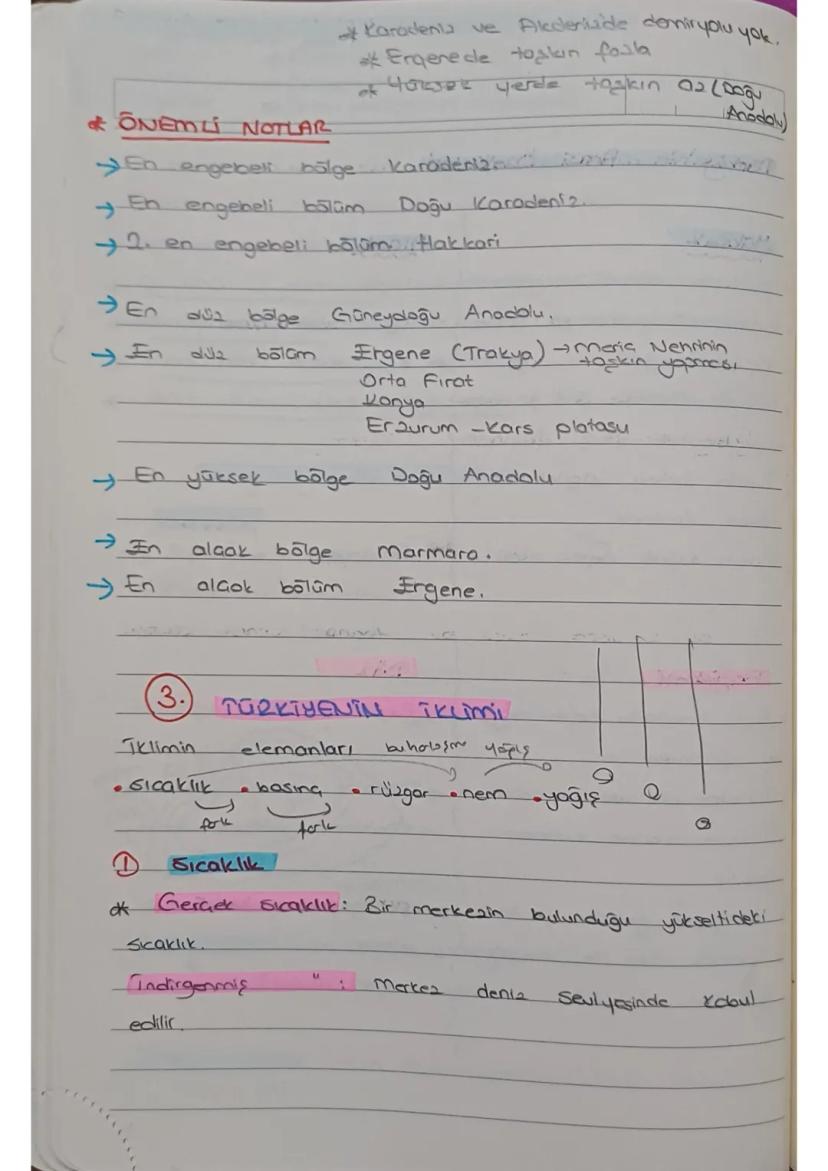 * Karadeniz ve Akdenizde demiryolu yok.
* Ergenede taşkın fazla
* Yüksek yerde taşkın az (Doğu Anadolu)
* ÖNEMLİ NOTLAR
→ En engebeli bölge Karadeniz.
→ En engebeli bölüm Doğu Karadeniz.
→ 2. en engebeli bölüm Hakkari
→ En düz bölge Güneydoğu Anadolu.
→ En düz bölüm Ergene (Trakya) → Meriç Nehrinin taşkın yapması
Orta Fırat
Konya
Erzurum - Kars platosu
→ En yüksek bölge Doğu Anadolu
→ En alçak bölge Marmara.
→ En alçak bölüm Ergene.
3. TÜRKİYENİN İKLİMİ
İklimin elemanları buharlaşma yağış
• sıcaklık • basınç • rüzgar • nem • yağış
fark fark
1 Sıcaklık
* Gerçek sıcaklık: Bir merkezin bulunduğu yükseltideki
sıcaklık.
İndirgenmiş " : Merkez deniz seviyesinde kabul
edilir.